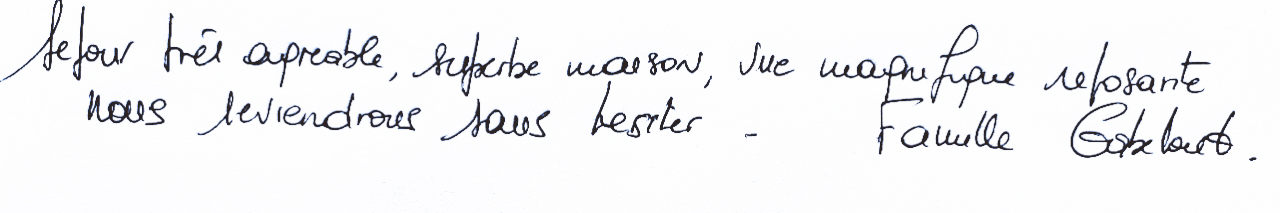 Sejour très agreable, superbe maison, vue magnifique reposante
nous reviendrons sans hesiter - Famille